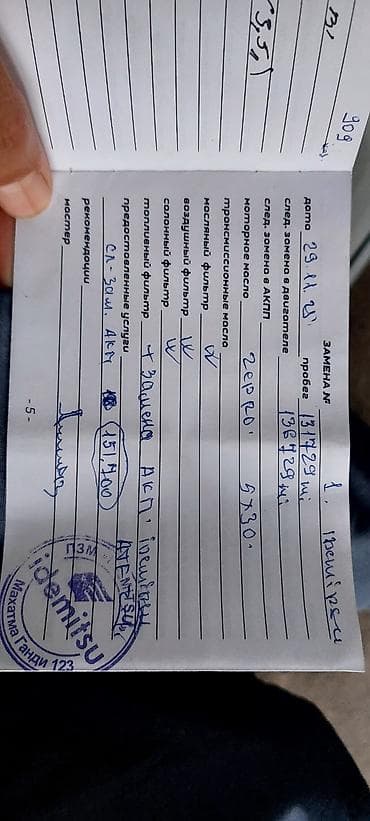 ЗАМЕНА № 1.
дата 29.11.21. пробег 131729 mi.
след. замена в двигателе 136729 mi
след. замена в АКПП
моторное масло zepro. 5x30.
трансмиссионные масло
масляный фильтр
воздушный фильтр
салонный фильтр
топливный фильтр + Замена АКП.
предоставленные услуги
сл-зам. АКП 151,700
рекомендации
мастер
- 5 -
ПЗМ
idemitsu
Махатма Ганди 123
909